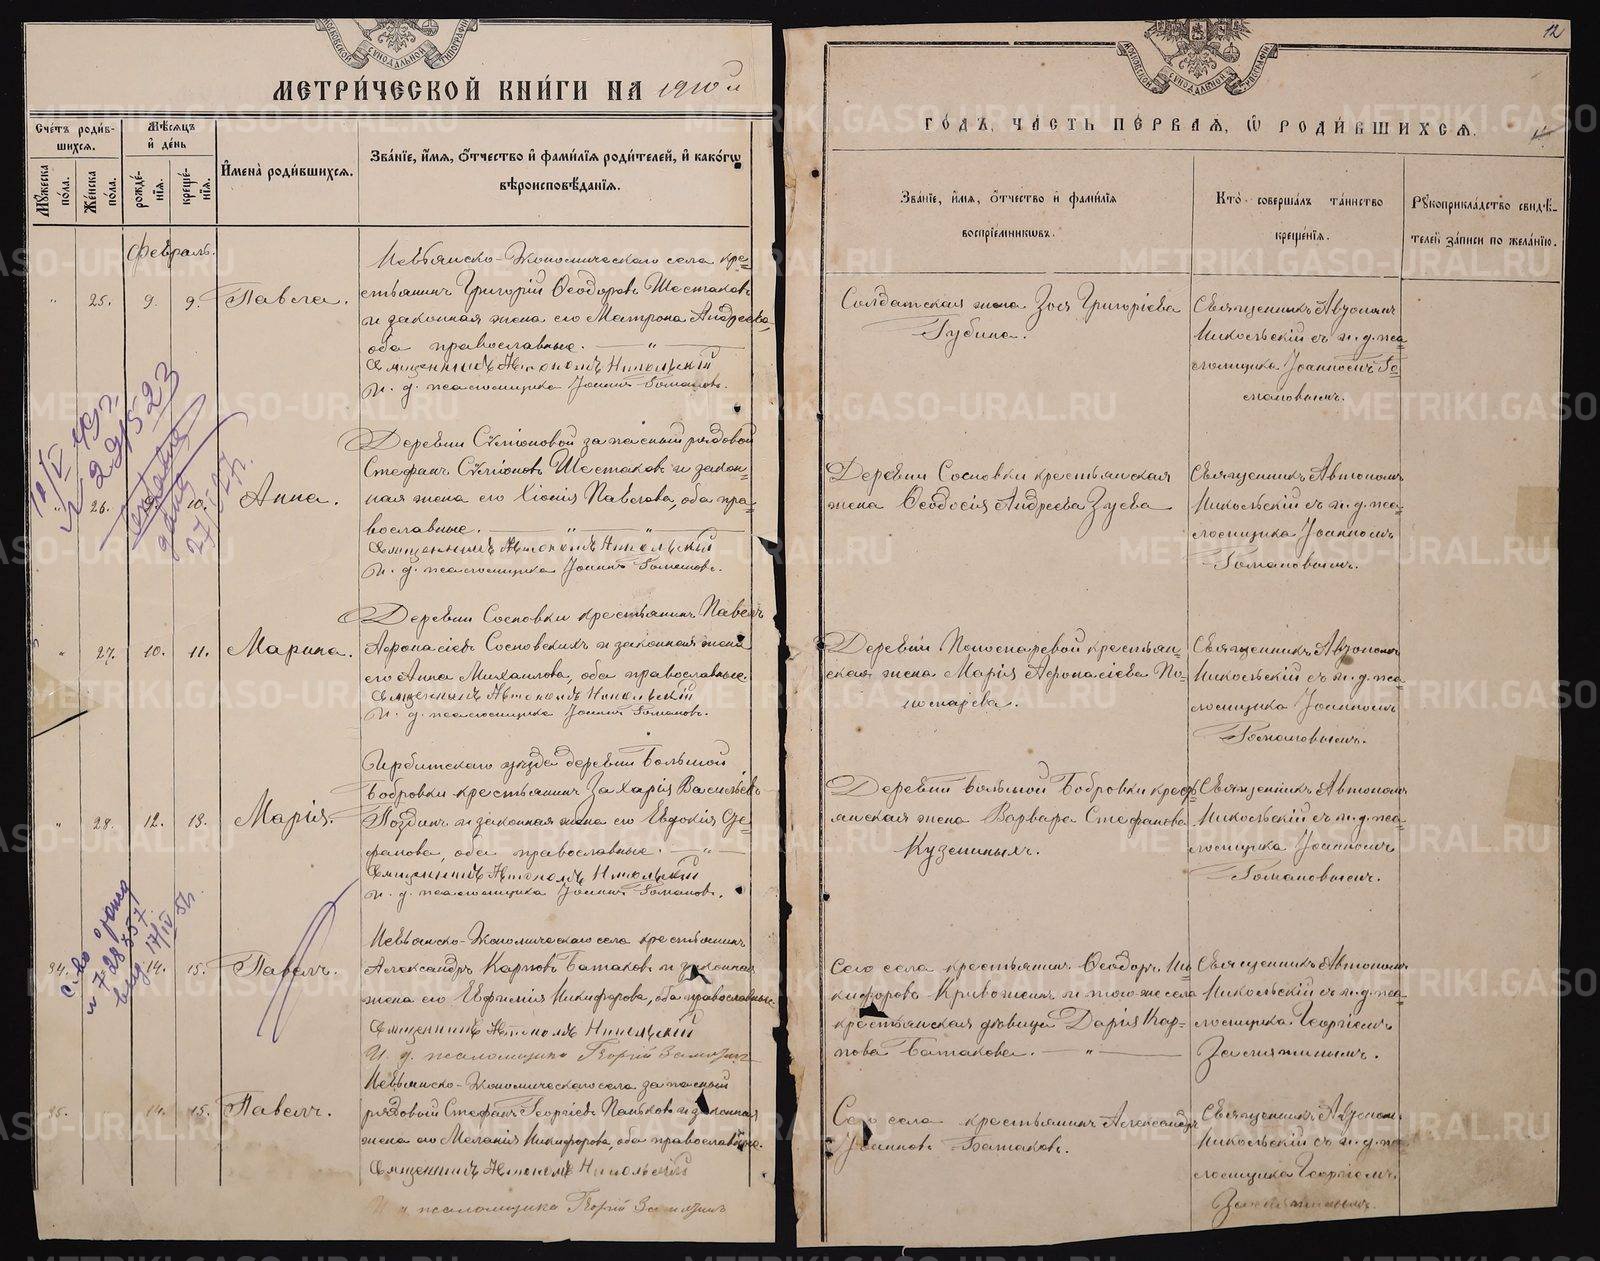 МЕТРИЧЕСКОЙ КНИГИ НА 1910й
Счетъ родив-
шихся.
Мѣсяцъ
и день
Мужеска
пола.
Женска
пола.
рожде-
нія.
креще-
нія.
Имена родившихся.
Званіе, имя, отчество и фамилія родителей, и какогѡ
вѣроисповѣданія.
Февраль.
" 25. 9. 9. Павла.
Невьянско-Экономическаго села кре=
стьянинъ Григорій Ѳеодоровъ Шестаковъ
и законная жена его Матрона Андреева,
оба православные. — " —
Священникъ Автономъ Никольскій
И. д. псаломщика Іоаннъ Гомановъ.
" 26. 10. Анна.
Деревни Сѣміоновой запасный рядовой
Стефанъ Сѣміоновъ Шестаковъ и закон=
ная жена его Хіонія Павлова, оба пра=
вославные. — " — " —
Священникъ Автономъ Никольскій
И. д. псаломщика Іоаннъ Гомановъ.
" 27. 10. 11. Марина.
Деревни Сосновки крестьянинъ Павелъ
Аѳонасіевъ Сосновскихъ и законная жена
его Анна Михаилова, оба православные.
Священникъ Автономъ Никольскій
И. д. псаломщика Іоаннъ Гомановъ.
" 28. 12. 13. Марія.
Ирбитскаго уѣзда деревни Большой
Бобровки крестьянинъ Захарія Васильевъ
Поздинъ и законная жена его Евдокія Сте=
фанова, оба православные. — " —
Священникъ Автономъ Никольскій
И. д. псаломщика Іоаннъ Гомановъ.
34. 14. 15. Павелъ.
Невьянско-Экономическаго села крестьянинъ
Александръ Карповъ Батаковъ и законная
жена его Евфимія Никифорова, оба православные.
Священникъ Автономъ Никольскій
И. д. псаломщика Георгій
35. 14. 15. Павелъ.
Невьянско-Экономическаго села запасный
рядовой Стефанъ Георгіевъ Паньковъ и законная
жена его Меланія Никифорова, оба православные.
Священникъ Автономъ Никольскій
псаломщика Георгій
12
ГОДЪ, ЧАСТЬ ПЕРВАЯ, Ѡ РОДИВШИХСЯ.
Званіе, имя, отчество и фамилія
воспріемниковъ.
Кто совершалъ таинство
крещенія.
Рукоприкладство свидѣ-
телей записи по желанію.
Солдатская жена Зоя Григоріева
Губина.
Священникъ Автономъ
Никольскій съ и. д. пса=
ломщика Іоанномъ Го=
мановымъ.
Деревни Сосновки крестьянская
жена Ѳеодосія Андреева Зуева
Священникъ Автономъ
Никольскій съ и. д. пса=
ломщика Іоанномъ
Гомановымъ.
Деревни Пономаревой крестьян=
ская жена Марія Аѳонасіева По=
номарева.
Священникъ Автономъ
Никольскій съ и. д. пса=
ломщика Іоанномъ
Гомановымъ.
Деревни Большой Бобровки кресть=
янская жена Варвара Стефанова
Куземиныхъ.
Священникъ Автономъ
Никольскій съ и. д. пса=
ломщика Іоанномъ
Гомановымъ.
Сего села крестьянинъ Ѳеодоръ Ни=
кифоровъ и того же села
крестьянская дѣвица Дарія Кар=
пова Батакова. — " —
Священникъ Автономъ
Никольскій съ и. д. пса=
ломщика Георгіемъ
Сего села крестьянинъ Александръ
Іоанновъ Батаковъ.
Священникъ Автономъ
Никольскій съ и. д. пса=
ломщика Георгіемъ
METRIKI.GASO-URAL.RU